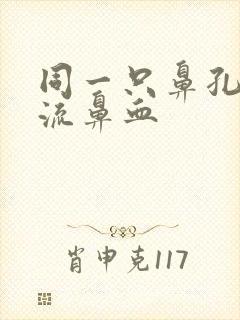 同一只鼻孔
流鼻血
肖申克117